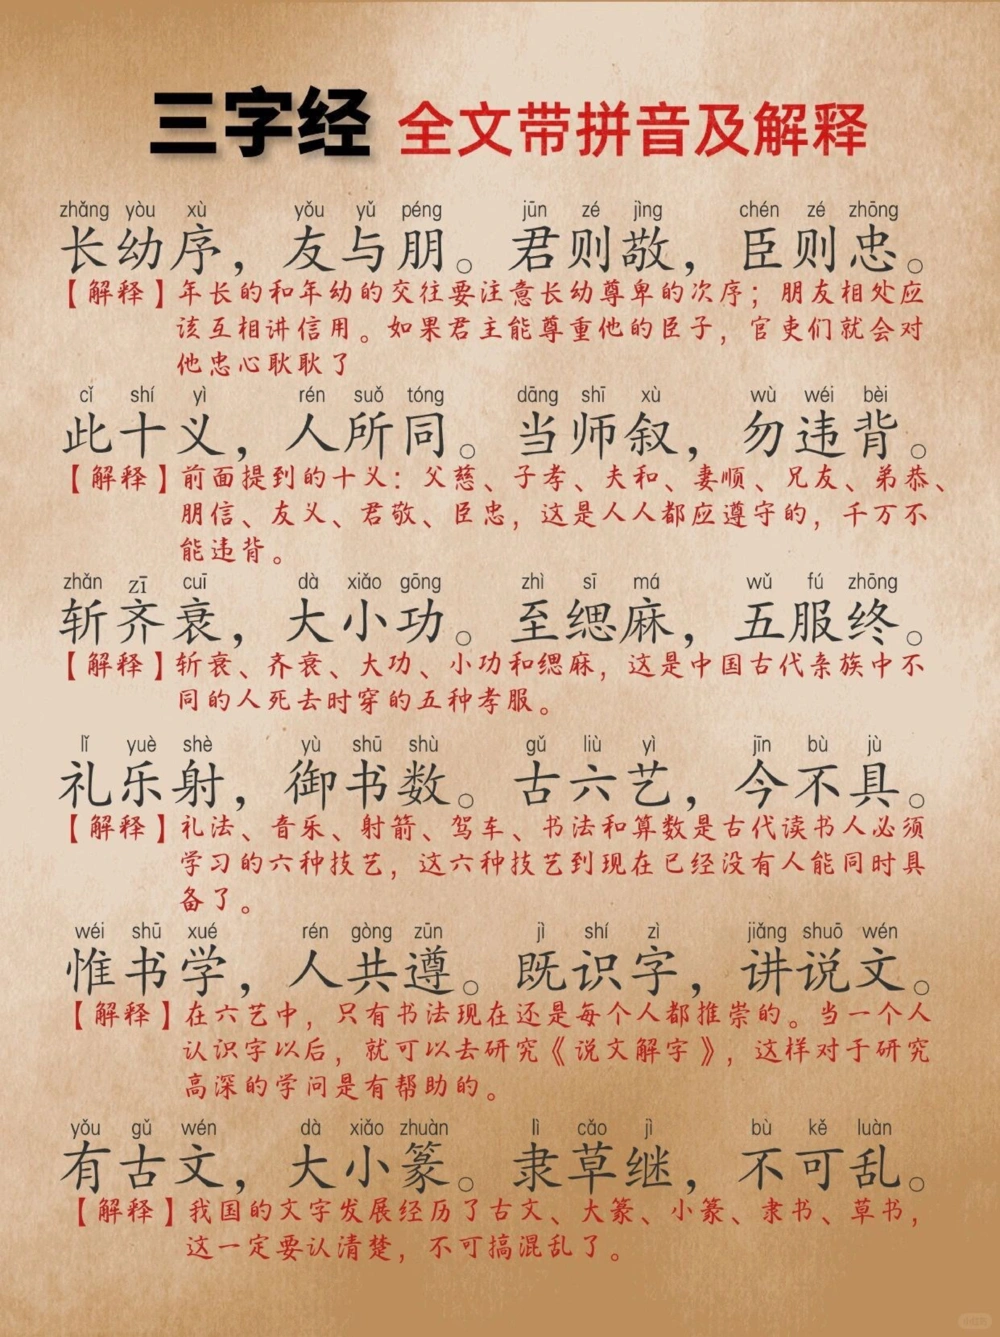 三字经 全文带拼音及解释
zhǎng yòu xù yǒu yǔ péng jūn zé jìng chén zé zhōng
长幼序，友与朋。君则敬，臣则忠。
【解释】年长的和年幼的交往要注意长幼尊卑的次序；朋友相处应
该互相讲信用。如果君主能尊重他的臣子，官吏们就会对
他忠心耿耿了
cǐ shí yì rén suǒ tóng dāng shī xù wù wéi bèi
此十义，人所同。当师叙，勿违背。
【解释】前面提到的十义：父慈、子孝、夫和、妻顺、兄友、弟恭、
朋信、友义、君敬、臣忠，这是人人都应遵守的，千万不
能违背。
zhǎn zī cuī dà xiǎo gōng zhì sī má wǔ fú zhōng
斩齐衰，大小功。至缌麻，五服终。
【解释】斩衰、齐衰、大功、小功和缌麻，这是中国古代亲族中不
同的人死去时穿的五种孝服。
lǐ yuè shè yù shū shù gǔ liù yì jīn bù jù
礼乐射，御书数。古六艺，今不具。
【解释】礼法、音乐、射箭、驾车、书法和算数是古代读书人必须
学习的六种技艺，这六种技艺到现在已经没有人能同时具
备了。
wéi shū xué rén gòng zūn jì shí zì jiǎng shuō wén
惟书学，人共遵。既识字，讲说文。
【解释】在六艺中，只有书法现在还是每个人都推崇的。当一个人
认识字以后，就可以去研究《说文解字》，这样对于研究
高深的学问是有帮助的。
yǒu gǔ wén dà xiǎo zhuàn lì cǎo jì bù kě luàn
有古文，大小篆。隶草继，不可乱。
【解释】我国的文字发展经历了古文、大篆、小篆、隶书、草书，
这一定要认清楚，不可搞混乱了。